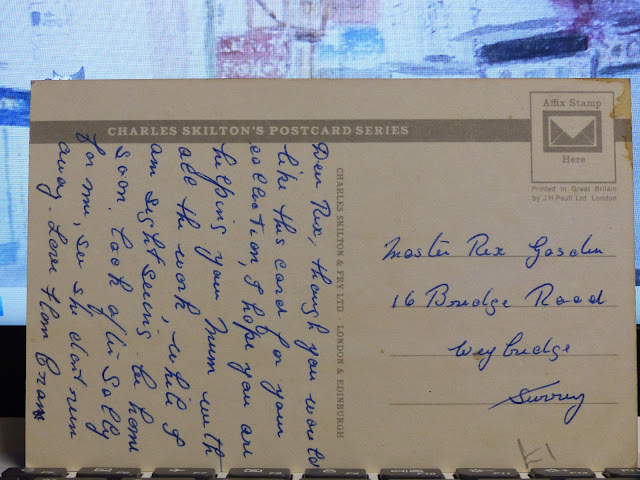 CHARLES SKILTON'S POSTCARD SERIES
Affix Stamp
Here
Printed in Great Britain
by J H Paull Ltd London
CHARLES SKILTON & FRY LTD · LONDON & EDINBURGH
Dear Rex, though you would
like this card for your
collection, I hope you are
helping your Mum with
all the work, while I
am sight seeing be home
soon. Look after Sally
for me, see she don't run
away. Love from Gran
Master Rex
16 Bridge Road
Weybridge
Surrey